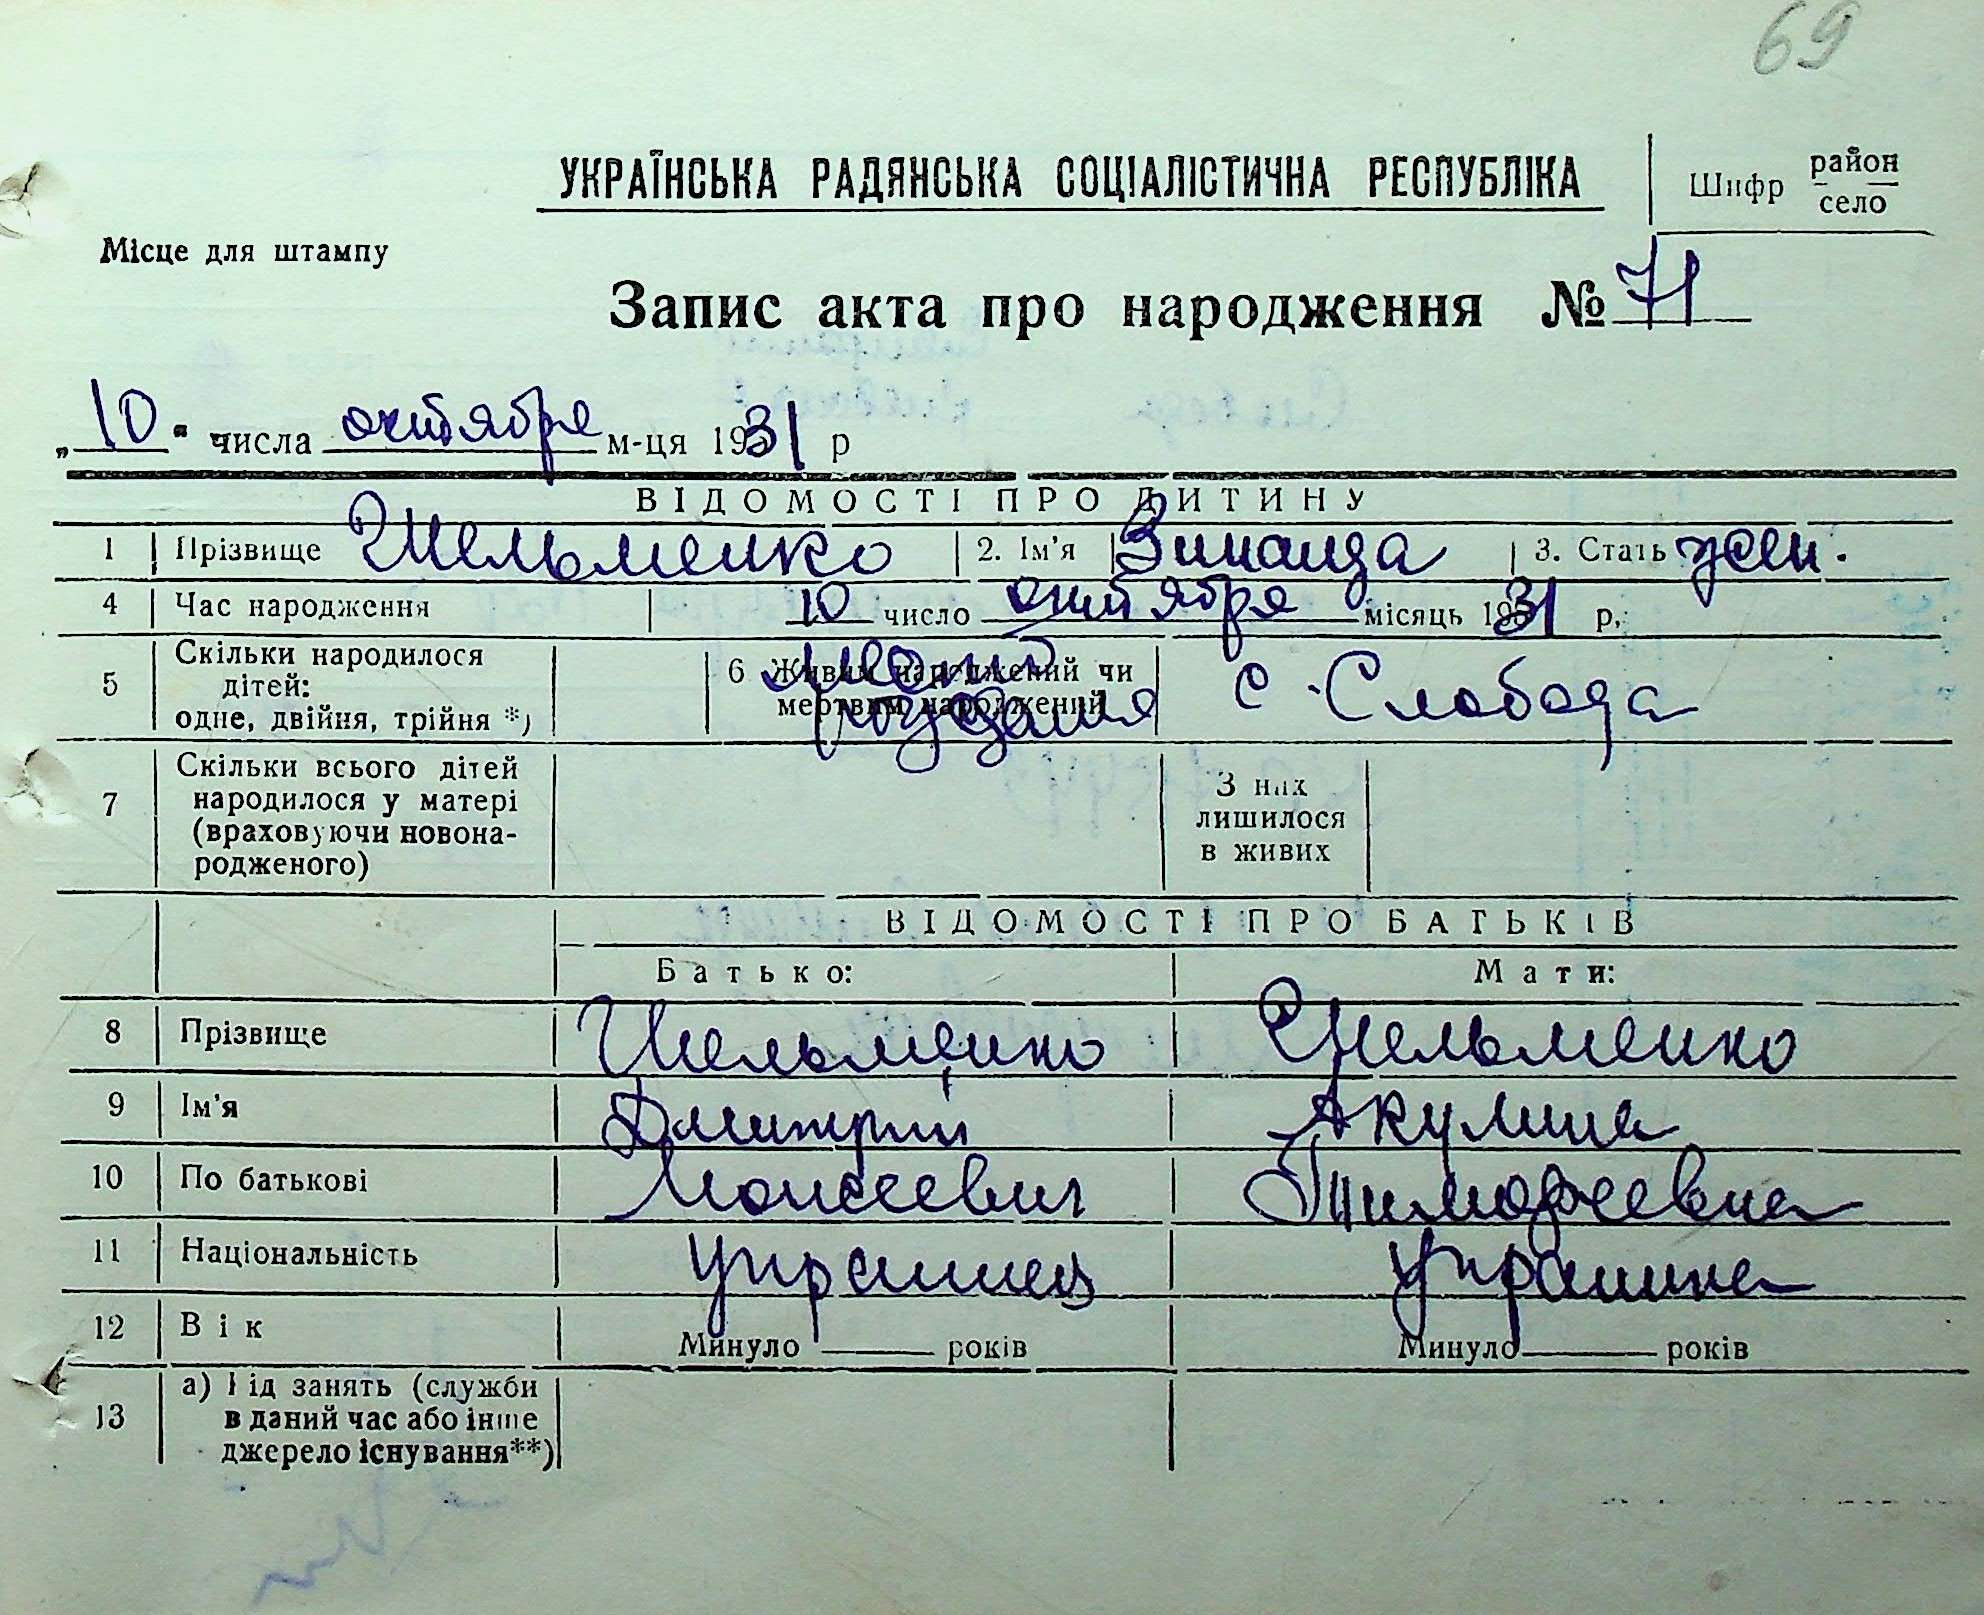 69
УКРАЇНСЬКА РАДЯНСЬКА СОЦІАЛІСТИЧНА РЕСПУБЛІКА
Шифр район
село
Місце для штампу
Запис акта про народження № 71
„10" числа октября м-ця 1931 р
ВІДОМОСТІ ПРО ДИТИНУ
1 Прізвище Шельменко 2. Ім'я Зинаида 3. Стать жен.
4 Час народження 10 число октября місяць 1931 р.
5 Скільки народилося дітей: одне, двійня, трійня *) 6 Живим народжений чи мертвим народжений место рождения с. Слобода
7 Скільки всього дітей народилося у матері (враховуючи новонародженого) З них лишилося в живих
ВІДОМОСТІ ПРО БАТЬКІВ
Батько: Мати:
8 Прізвище Шельменко Шельменко
9 Ім'я Дмитрий Акулина
10 По батькові Моисеевич Тимофеевна
11 Національність украинец украинка
12 Вік Минуло ____ років Минуло ____ років
13 а) Рід занять (служби в даний час або інше джерело існування**)